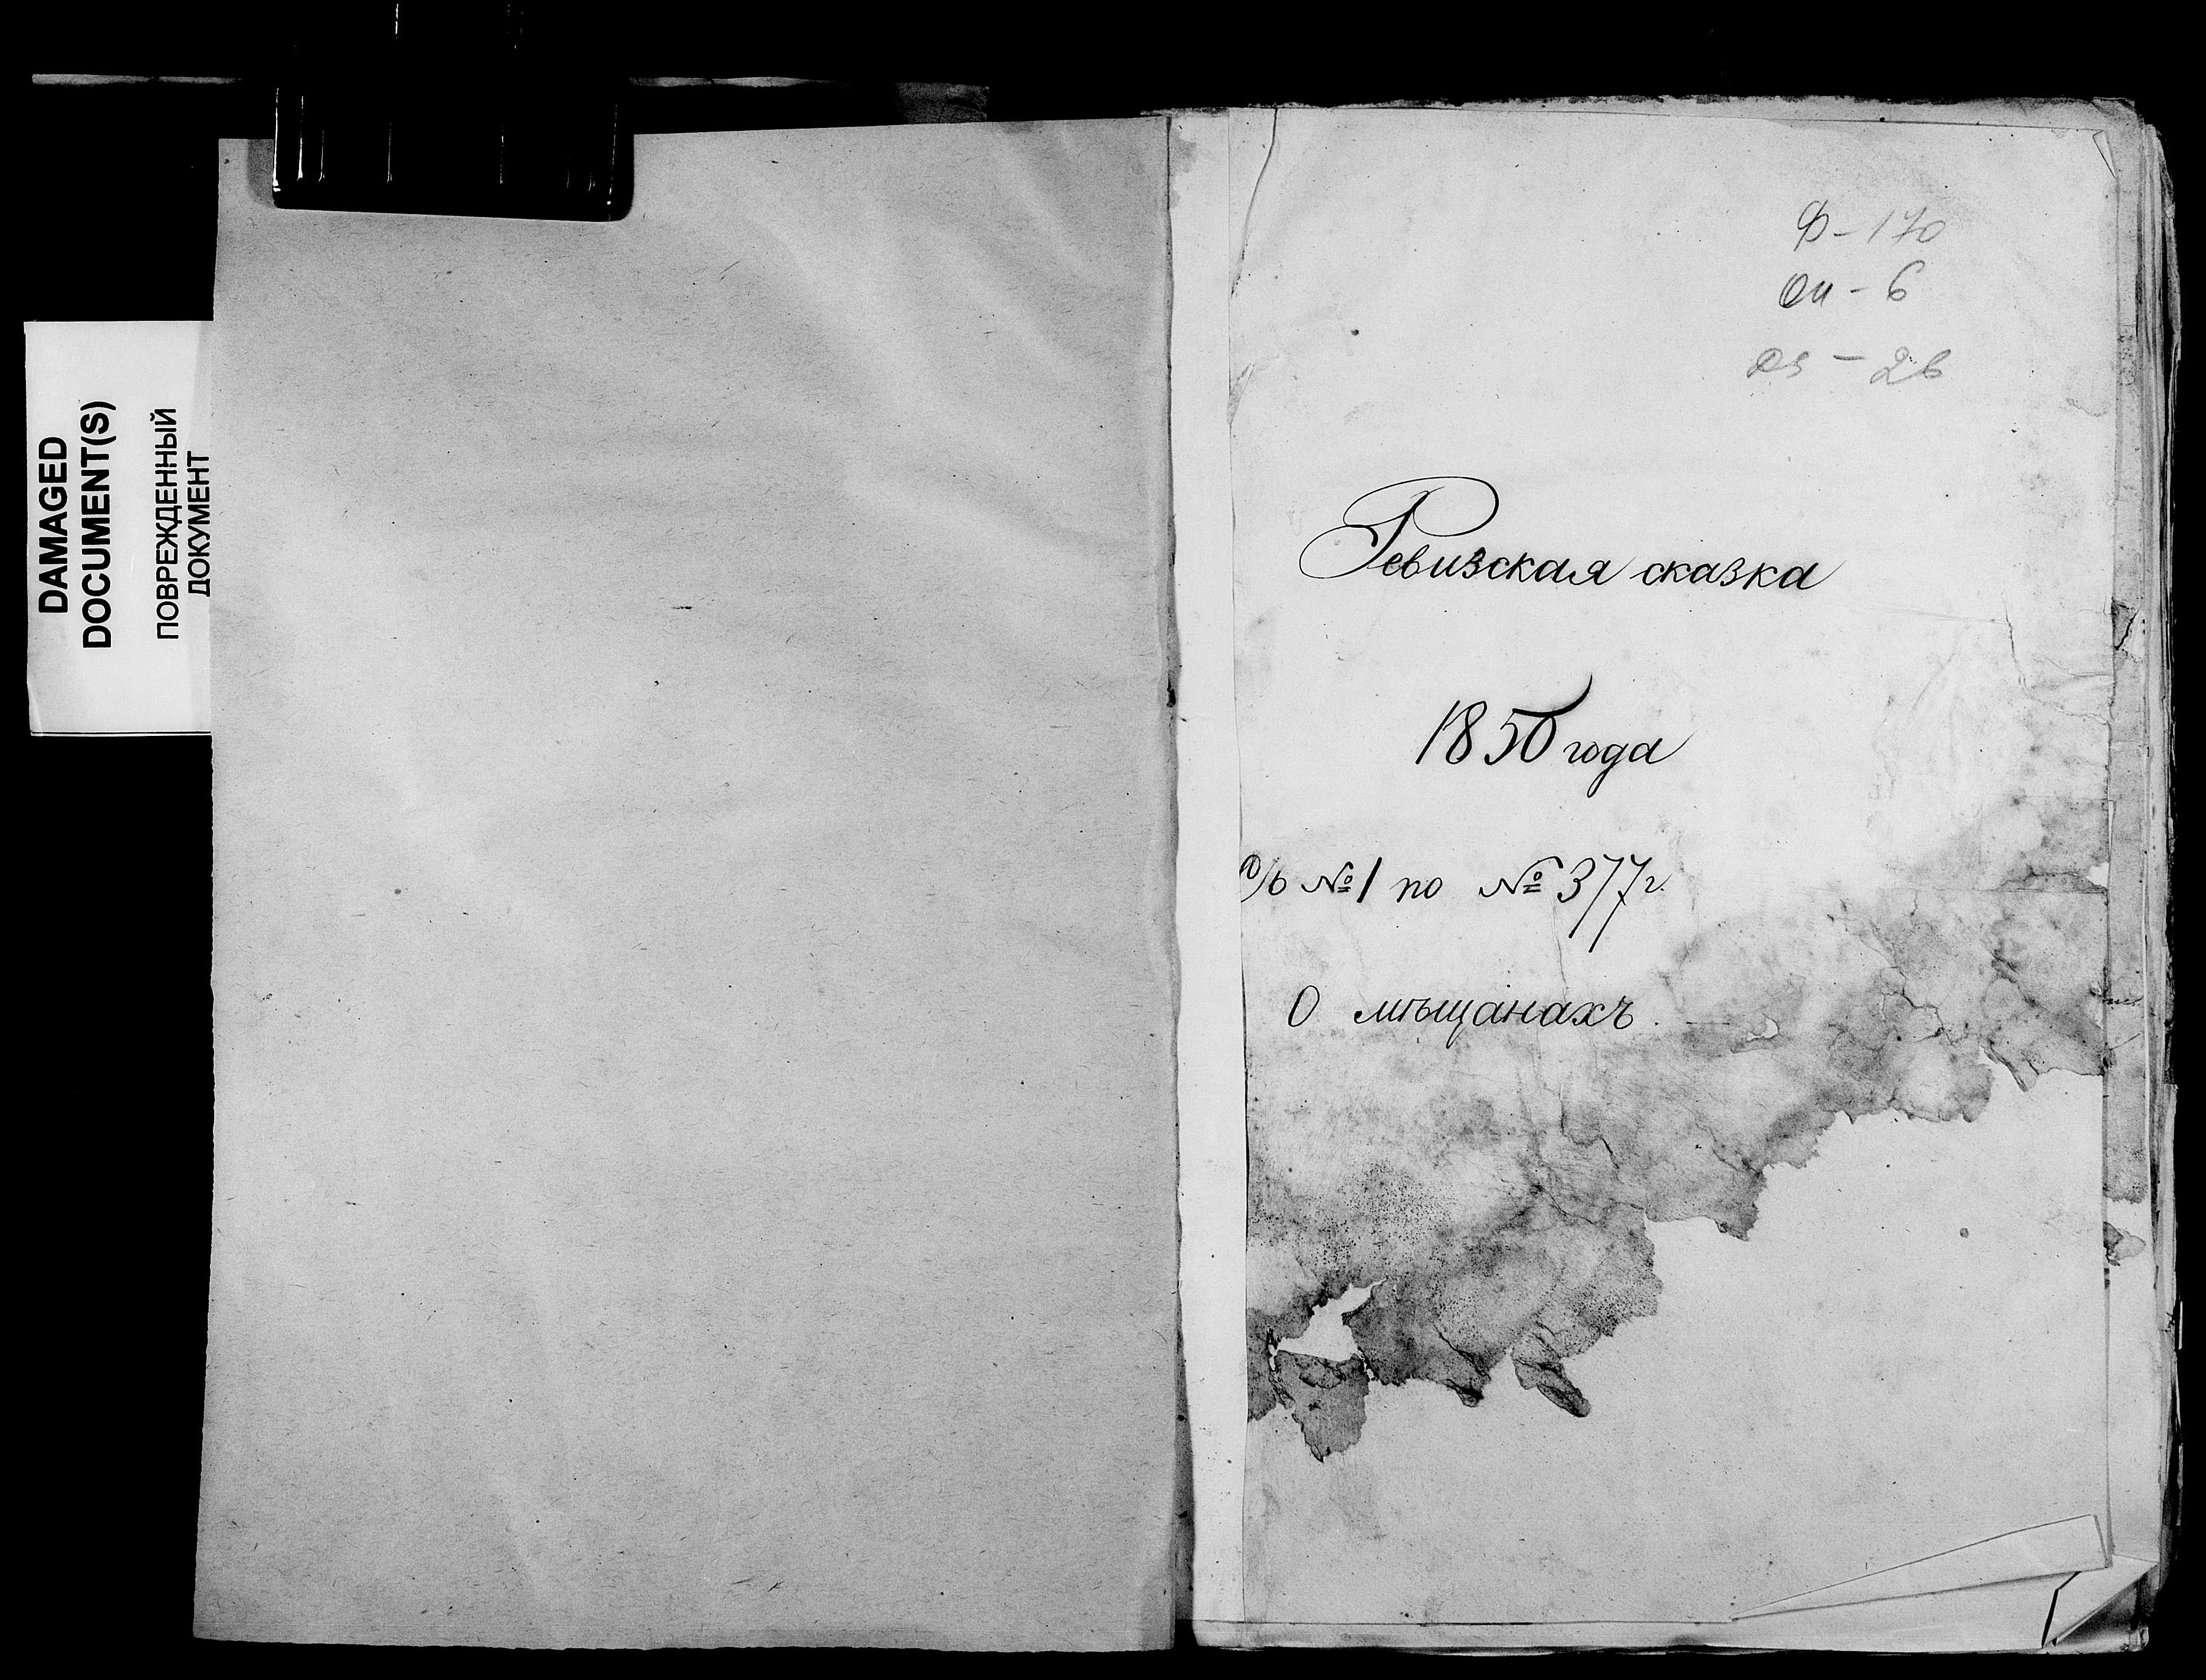 DAMAGED
DOCUMENT(S)
ПОВРЕЖДЕННЫЙ
ДОКУМЕНТ
Ф-170
Оп-6
Ревизская сказка
1850 года
№1 по №377
О мѣщанахъ.